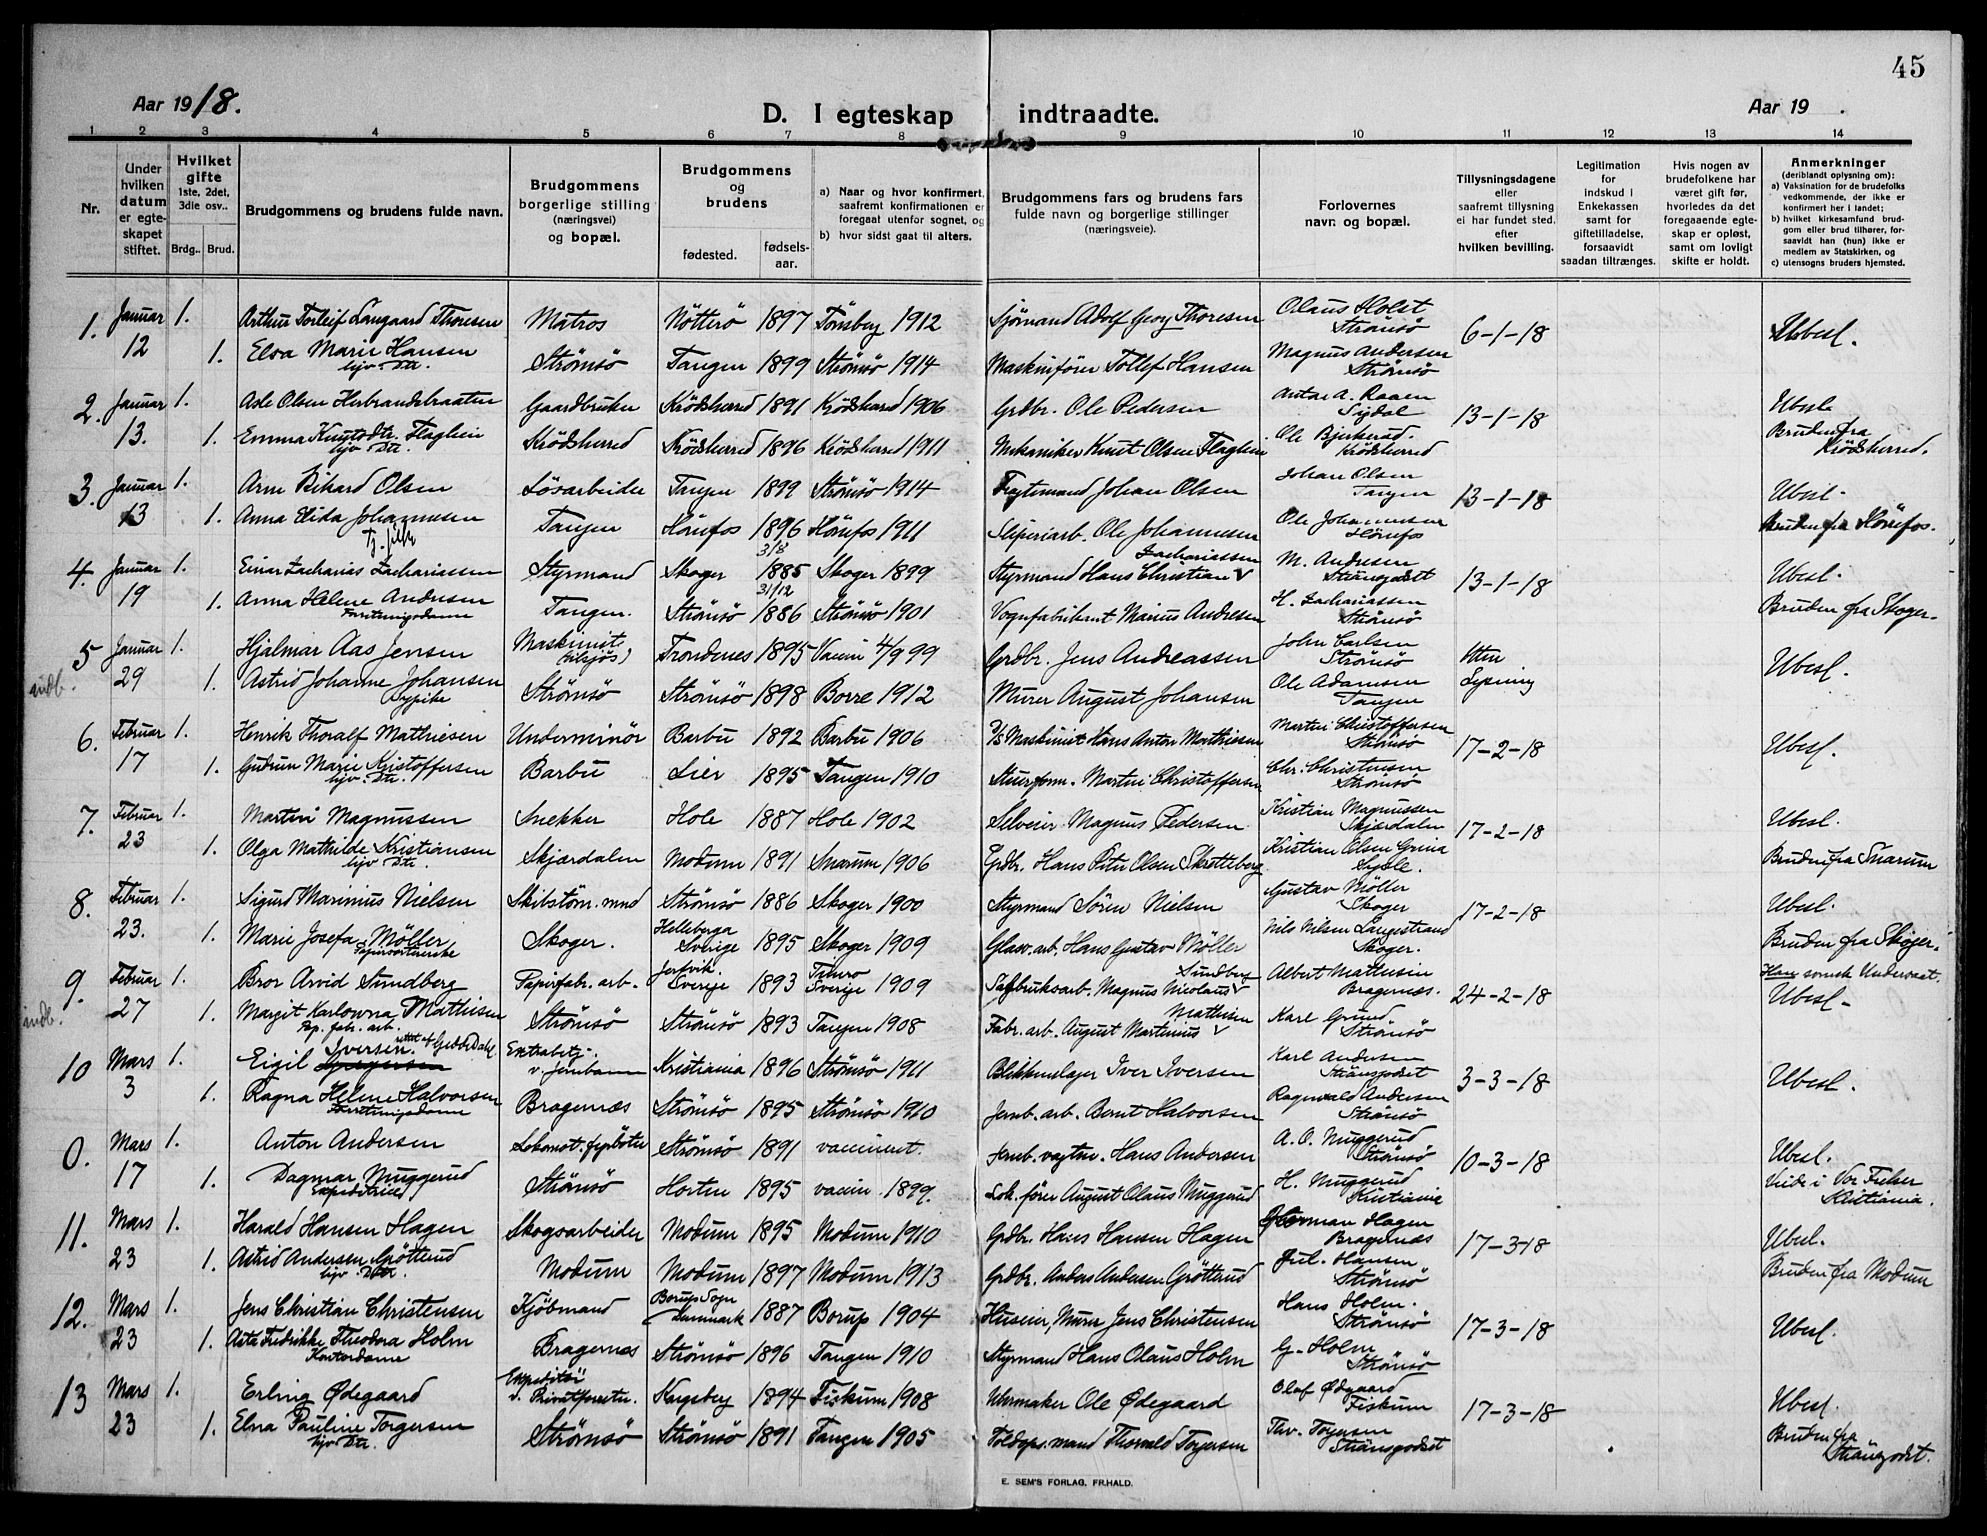 45
Aar 1918.
D. I egteskap indtraadte.
Aar 19 .
1 2 3 4 5 6 7 8 9 10 11 12 13 14
Nr.
Under hvilken datum er egteskapet stiftet.
Hvilket gifte 1ste, 2det, 3die osv..
Brdg.. Brud.
Brudgommens og brudens fulde navn.
Brudgommens borgerlige stilling (næringsvei) og bopæl.
Brudgommens og brudens
fødested. fødsels-aar.
a) Naar og hvor konfirmert, saafremt konfirmationen er foregaat utenfor sognet, og
b) hvor sidst gaat til alters.
Brudgommens fars og brudens fars fulde navn og borgerlige stillinger (næringsveie).
Forlovernes navn og bopæl.
Tillysningsdagene eller saafremt tillysning ei har fundet sted, efter hvilken bevilling.
Legitimation for indskud i Enkekassen samt for giftetilladelse, forsaavidt saadan tiltrænges.
Hvis nogen av brudefolkene har været gift før, hvorledes da det foregaaende egteskap er opløst, samt om lovligt skifte er holdt.
Anmerkninger (deriblandt oplysning om):
a) Vaksination for de brudefolks vedkommende, der ikke er konfirmert her i landet;
b) hvilket kirkesamfund brudgom eller brud tilhører, forsaavidt han (hun) ikke er medlem av Statskirken, og
c) utensogns bruders hjemsted.
1. Januar 1. Arthur Torleif Langaard Thoresen Matros Nötterö 1897 Tönsberg 1912 Sjömand Adolf Georg Thoresen Olaus Holst Strömsö 6-1-18 Ubesl.
12 1. Elva Marie Hansen Strömsö Tangen 1899 Strömsö 1914 Maskinförer Tollef Hansen Magnus Andersen Strömsö
hjv. Dtr.
2. Januar 1. Asle Olsen Herbrandsbraaten Gaardbruker Krödsherred 1891 Krödsherred 1906 Grdbr. Ole Pedersen Anton A. Raaen Sydal 13-1-18 Ubesl.
13. 1. Emma Knutsdtr. Flaglien Krödsherred Krödsherred 1896 Krödsherred 1911 Mekaniker Knut Olsen Flaglien Ole Bjerkerud. Krödsherred Bruden fra Krödsherred.
hjv Dtr.
3. Januar 1. Arne Rikard Olsen Lösarbeider Tangen 1899 Strömsö 1914 Fragtemand Johan Olsen Johan Olsen Tangen 13-1-18 Ubesl.
13 1. Anna Elida Johannesen Tangen Hönefos 1896 Hönefos 1911 Sliperiarb. Ole Johannesen Ole Johannesen Hönefos Bruden fra Hönefos.
Tj. pike
4. Januar 1. Einar Zacharias Zachariassen Styrmand Skoger 3/8 1885 Skoger 1899 Styrmand Hans Christian Zachariassen M. Andresen Strömsgodset 13-1-18 Ubesl.
19 1. Anna Helene Andresen Tangen. Strömsö 31/12 1886 Strömsö 1901 Vognfabrikant Marius Andresen H. Zachariassen Strömsö Bruden fra Skoger.
Forretningsdame
5 Januar 1. Hjalmar Aas Jensen Maskinist (tilsjös) Trondenes 1895 Vaccin 4/9 99 Grdbr. Jens Andreassen John Carlsen Strömsö Uten Lysning Ubesl.
indb. 29 1. Astrid Johanne Johansen Strömsö Strömsö 1898 Borre 1912 Murer August Johansen Ole Adamsen Tangen
Sypike
6. Februar 1. Henrik Thoralf Mathiesen Underminör Barbu 1892 Barbu 1906 D/S Maskinist Hans Anton Mathiesen Martin Christoffersen Strömsö 17-2-18 Ubesl.
17 1. Gudrun Marie Kristoffersen Barbu Lier 1895 Tangen 1910 Stuerform. Martin Christoffersen Chr. Christensen Strömsö
hjv. Dtr.
7. Februar 1. Martin Magnussen Snekker Hole 1887 Hole 1902 Selveier Magnus Pedersen Kristian Magnussen Skjærdalen 17-2-18 Ubesl.
23 1. Olga Mathilde Kristiansen Skjærdalen Modum 1891 Snarum 1906 Grdbr. Hans Peter Olsen Skretteberg Kristian Olsen Sysle. Bruden fra Snarum
hjv Dtr.
8. Februar 1. Sigurd Marinius Nielsen Skibstöm. mnd Strömsö 1886 Skoger 1900 Styrmand Sören Nielsen Gustav Möller Skoger 17-2-18 Ubesl.
23. 1. Marie Josefa Möller Skoger. Helleberga Sverige 1895 Skoger 1909 Glasv. arb. Hans Gustav Möller Nils Nilsen Langestrand Skoger. Bruden fra Skoger.
Papirsorterske
9. Februar 1. Bror Arvid Sundberg Papirfabr. arb. Sverige 1893 Sverige 1909 Sagbruksarb. Magnus Nicolaus Sundberg Albert Mathisen Bragernæs. 24-2-18 Han svensk Undersaat. Ubesl.
indb. 27 1. Margit Karlowna Mathisen Strömsö Strömsö 1893 Tangen 1908 Fabr. arb. August Martinius Mathisen Karl Grund Strömsö
Pap. fabr. arb.
10 Mars 1. Eigil Iversen. rettet af Gedde Dahl Extrabetj. v. Jernbanen Kristiania 1896 Strömsö 1911 Blikkenslager Iver Iversen Karl Andersen Strömsgodset 3-3-18 Ubesl.
3 1. Ragna Helene Halvorsen Bragernæs Strömsö 1895 Strömsö 1910 Jernb. arb. Bernt Halvorsen Ragnvald Andersen Strömsö
Forretningsdame
0. Mars 1. Anton Andersen Lokomot. fyrböter Strömsö 1891 vaccinert. Jernb. vogter. Hans Andersen A. O. Muggerud Strömsö 10-3-18 Ubesl.
17 1. Dagmar Muggerud Strömsö Horten 1895 vaccin. 1899. Lok. förer August Olaus Muggerud H. Muggerud Kristiania Viede i Vor Frelser Kristiania.
Expeditrice
11. Mars 1. Harald Hansen Hagen Skogsarbeider Modum 1895 Modum 1910 Grdbr. Hans Hansen Hagen Herman Hagen Bragernæs 17-3-18 Ubesl.
23 1. Astrid Andersen Grötterud Modum Modum 1897 Modum 1913 Grdbr. Anders Andersen Grötterud Jul. Hansen Strömsö Bruden fra Modum
hjv. Dtr.
12. Mars 1. Jens Christian Christensen Kjöbmand Borup Sogn Danmark 1887 Borup 1904 Huseier, Murer Jens Christensen Hans Holm. Strömsö 17-3-18 Ubesl.
23 1. Asta Fredrikke Theodora Holm Bragernæs Strömsö 1896 Tangen 1910 Styrmand Hans Olaus Holm G. Holm Strömsö
Kontordame
13 Mars 1. Erling Ødegaard Expeditör v. Privatforretn. Kongsberg 1894 Fiskum 1908 Uhrmaker Ole Ødegaard Olaf Ødegaard Fiskum 17-3-18 Ubesl.
23 1. Elna Pauline Torgersen Strömsö Strömsö 1891 Tangen 1905 Toldops. mand Thorvald Torgersen Thv. Torgersen Strömsgodset Bruden fra Strömsgodset.
hjv. Dtr.
E. SEM'S FORLAG, FR.HALD.